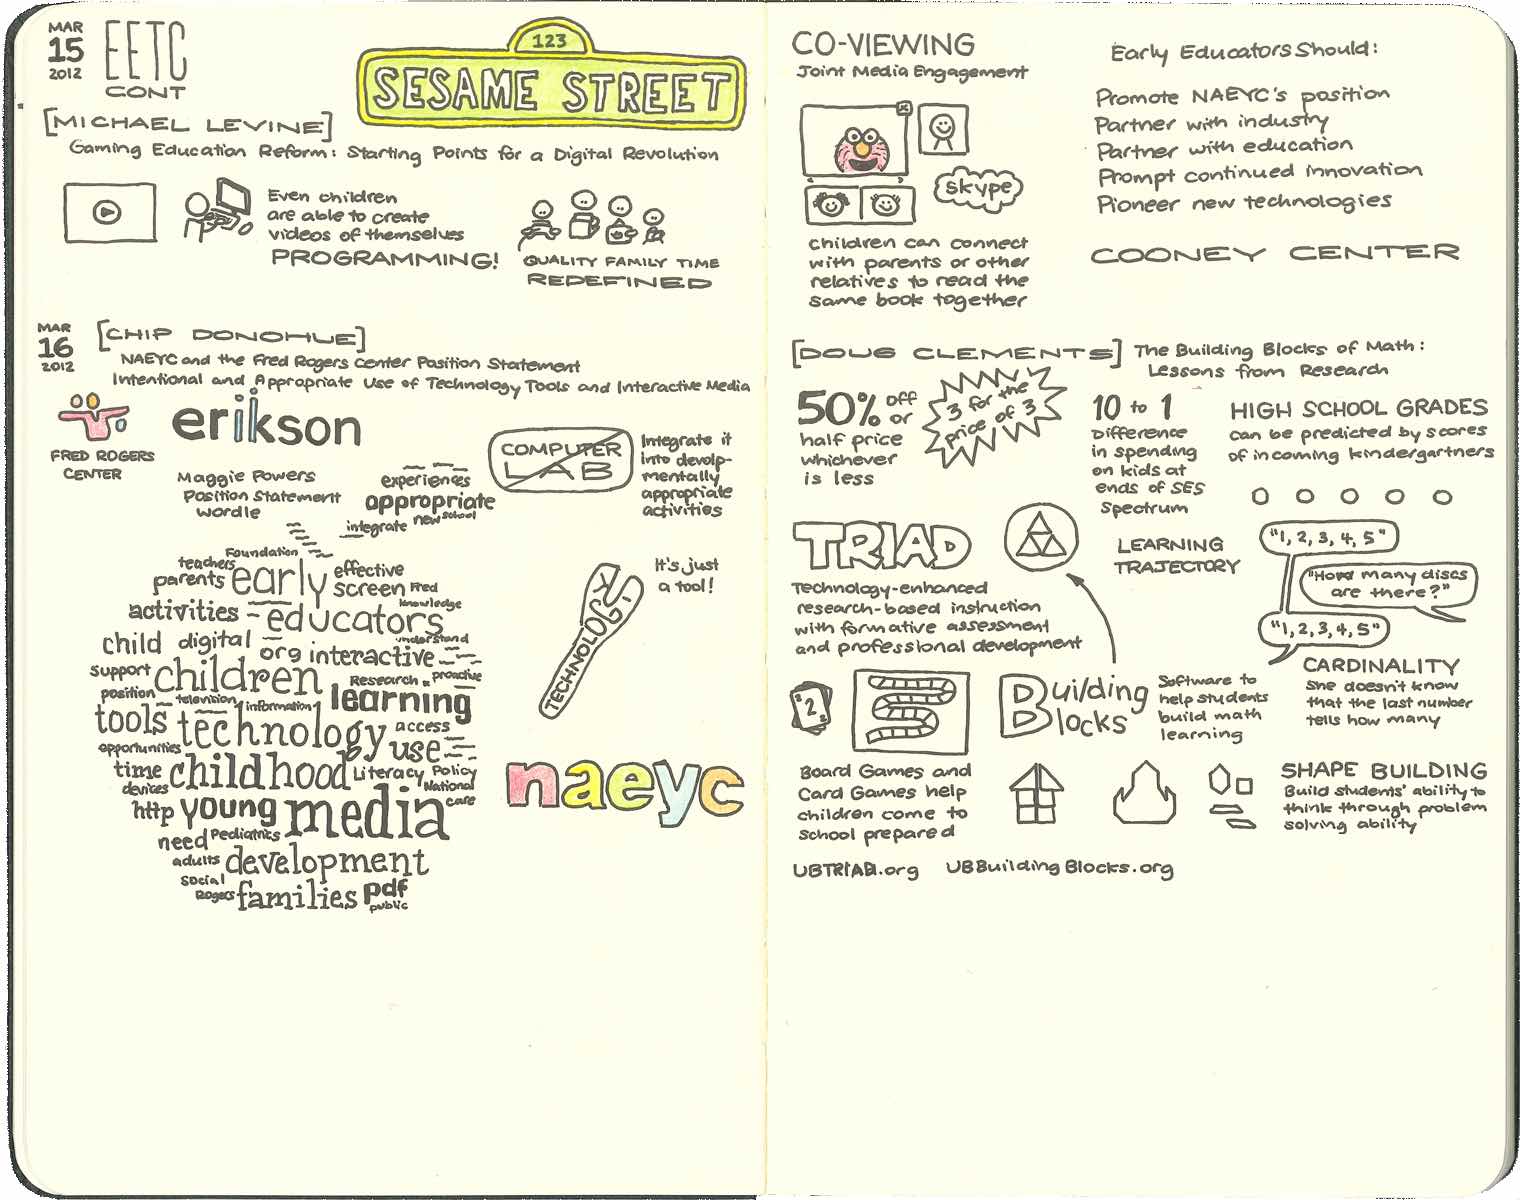 MAR
15
2012
EETC
CONT
123
SESAME STREET
[MICHAEL LEVINE]
Gaming Education Reform: Starting Points for a Digital Revolution
Even children
are able to create
videos of themselves
PROGRAMMING!
QUALITY FAMILY TIME
REDEFINED
MAR
16
2012
[CHIP DONOHUE]
NAEYC and the Fred Rogers Center Position Statement
Intentional and Appropriate Use of Technology Tools and Interactive Media
FRED ROGERS
CENTER
erikson
Maggie Powers
Position Statement
Wordle
COMPUTER
LAB
Integrate it
into devolp-
mentally
appropriate
activities
experiences
appropriate
integrate new school
Foundation
teachers
parents early effective
screen Fred
activities educators knowledge
child digital understand
org interactive
support children Research proactive
position television information learning
tools technology access
opportunities use
time childhood Literacy Policy
devices National
http young media care
need Pediatrics
adults development
social
Rogers families pdf
public
It's just
a tool!
TECHNOLOGY
naeyc
CO-VIEWING
Joint Media Engagement
skype
children can connect
with parents or other
relatives to read the
same book together
Early Educators Should:
Promote NAEYC's position
Partner with industry
Partner with education
Prompt continued innovation
Pioneer new technologies
COONEY CENTER
[DOUG CLEMENTS] The Building Blocks of Math:
Lessons from Research
50% off
or
half price
whichever
is less
3 for the
price of 3
10 to 1
Difference
in spending
on kids at
ends of SES
Spectrum
HIGH SCHOOL GRADES
can be predicted by scores
of incoming kindergartners
TRIAD
Technology-enhanced
research-based instruction
with formative assessment
and professional development
LEARNING
TRAJECTORY
"1, 2, 3, 4, 5"
"How many discs
are there?"
"1, 2, 3, 4, 5"
CARDINALITY
She doesn't know
that the last number
tells how many
2
Board Games and
Card Games help
children come to
school prepared
Building
Blocks
Software to
help students
build math
learning
SHAPE BUILDING
Build students' ability to
think through problem
solving ability
UBTRIAD.org UBBuildingBlocks.org